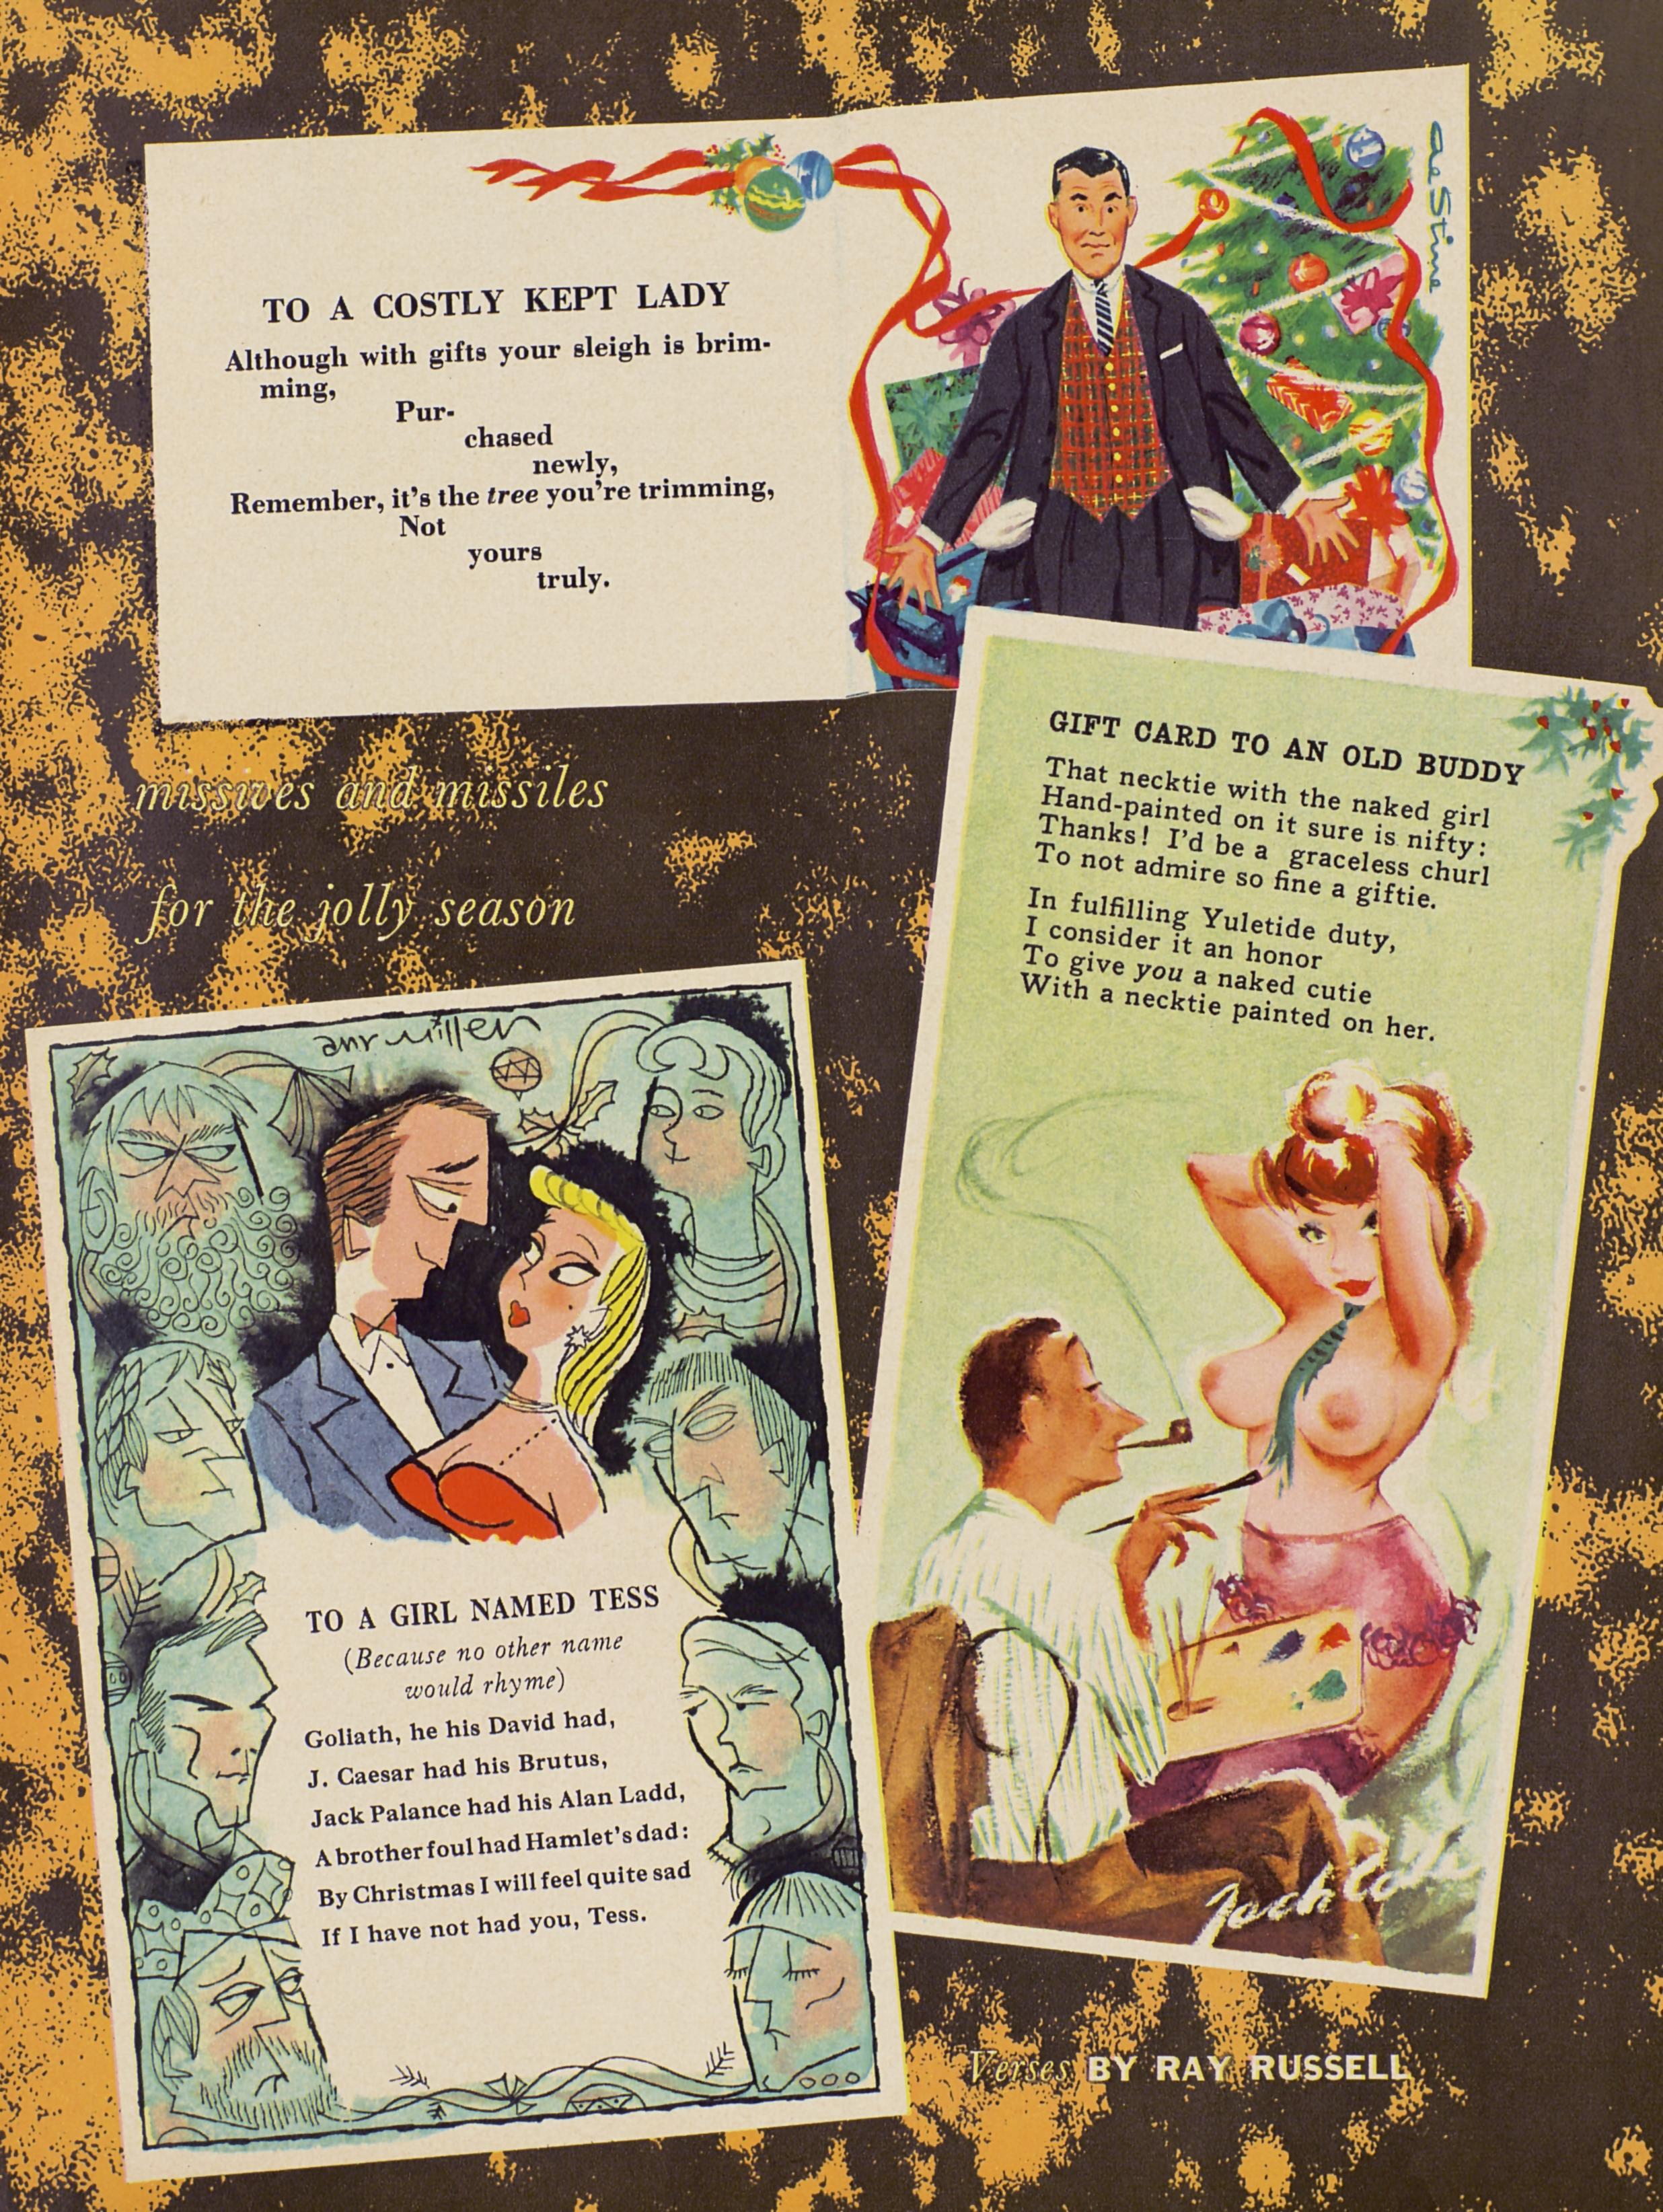 TO A COSTLY KEPT LADY
Although with gifts your sleigh is brim-
ming,
Pur-
chased
newly,
Remember, it's the tree you're trimming,
Not
yours
truly.
de Stine
missives and missiles
for the jolly season
GIFT CARD TO AN OLD BUDDY
That necktie with the naked girl
Hand-painted on it sure is nifty:
Thanks! I'd be a graceless churl
To not admire so fine a giftie.
In fulfilling Yuletide duty,
I consider it an honor
To give you a naked cutie
With a necktie painted on her.
Jack Cole
arv miller
TO A GIRL NAMED TESS
(Because no other name
would rhyme)
Goliath, he his David had,
J. Caesar had his Brutus,
Jack Palance had his Alan Ladd,
A brother foul had Hamlet's dad:
By Christmas I will feel quite sad
If I have not had you, Tess.
Verses BY RAY RUSSELL